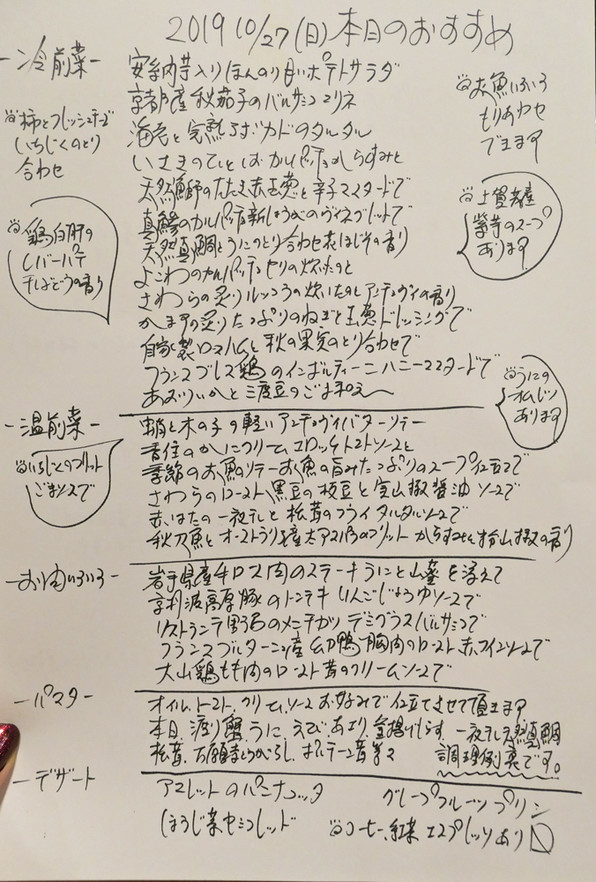 2019 10/27(日)本日のおすすめ
-冷前菜-
安納芋入りほんのり甘いポテトサラダ
京都産秋茄子のバルサミコマリネ
海老と完熟アボカドのタルタル
いさきの カルパッチョからすみと
天然鰤のたたき赤玉葱と辛子マスタードで
真鯵のカルパッチョ新しょうがのヴィネグレットで
天然真鯛とうにのとり合わせ 花ほじその香り
よこわのカルパッチョセリの炊いたのと
さわらの炙り の炊いたのとアンチョヴィの香り
かますの炙りたっぷりのねぎと玉葱ドレッシングで
自家製ロースハムと秋の果実のとり合わせで
フランスブレス鶏のインボルティーニハニーマスタードで
あおりいかと三度豆のごま和え
柿とフレッシュチーズ
いちじくのとり
合わせ
鶏白肝の
レバーパテ
干しぶどうの香り
お魚いろいろ
もりあわせ
できます
上賀茂産
紫芋のスープ
あります
うにの
あります
-温前菜-
いちじくのフリット
ごまソースで
蛸と木の子の軽いアンチョヴィバターソテー
香住のかにクリームコロッケトマトソースと
季節のお魚のソテーお魚の旨みたっぷりのスープ仕立で
さわらのロースト黒豆の枝豆と実山椒醤油ソースで
赤はたの一夜干しと松茸のフライタルタルソースで
秋刀魚とオーストラリア産太アスパラのフリット からすみと粉山椒の香り
-お肉いろいろ-
岩手県産牛ロース肉のステーキうにと山葵を添えて
京丹波高原豚のトンテキりんごじょうゆソースで
リストランテ野呂のメンチカツ デミグラスバルサミコで
フランスブルターニュ産幼鴨胸肉のロースト赤ワインソースで
大山鶏もも肉のロースト茸のクリームソースで
-パスタ-
オイル、トマト、クリームソースお好みで仕立てさせて頂きます
本日、渡り蟹、うに、えび、あさり、釜揚げしらす、一夜干し天然真鯛
松茸、万願寺とうがらし、ポルチーニ茸 等々
調理例裏です。
-デザート
アマレットのパンナコッタ
グレープフルーツプリン
ほうじ茶セミフレッド
コーヒー、紅茶、エスプレッソあり